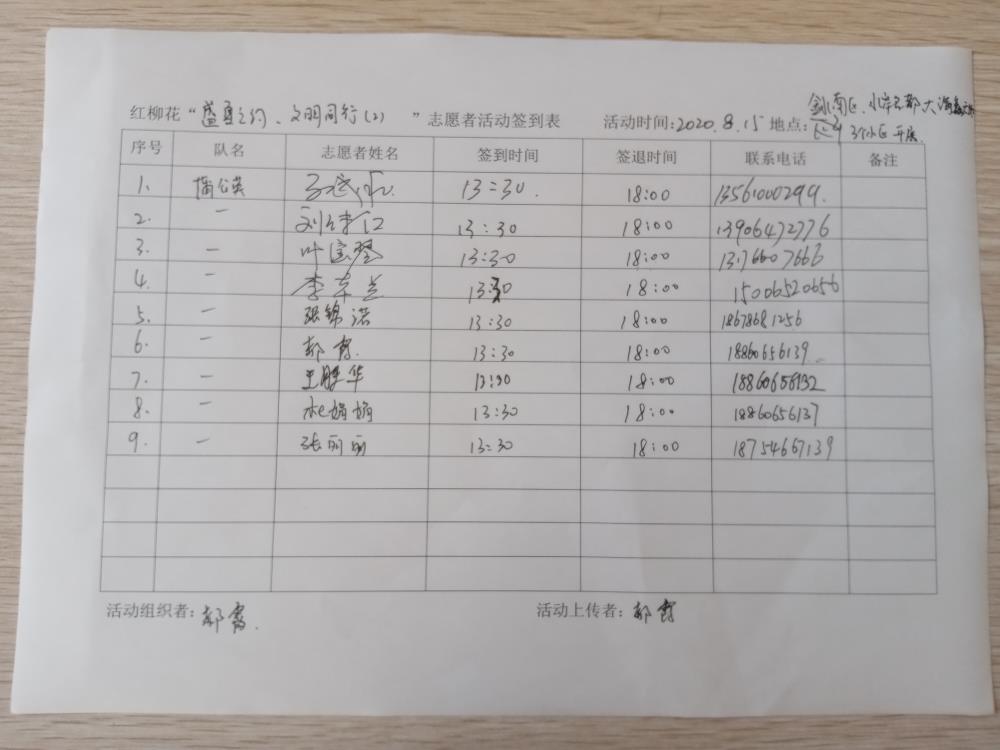 红柳花“盛夏之约、文明同行(2)”志愿者活动签到表 活动时间:2020.8.15 地点:
3个小区开展
序号 队名 志愿者姓名 签到时间 签退时间 联系电话 备注
1. 蒲公英 13:30. 18:00 13561000299.
2. — 13:30 18:00 13906472776
3. — 叶 13:30 18:00 13176607666
4. — 李 兰 13:30 18:00 15006520656
5. — 张锦诺 13:30 18:00 18678681256
6. — 郝霞. 13:30 18:00 18860656139
7. — 王胜华 13:30 18:00
8. — 杜娟娟 13:30 18:00 18860656137
9. — 张丽丽 13:30 18:00 18754667139
活动组织者:郝霞. 活动上传者:郝霞